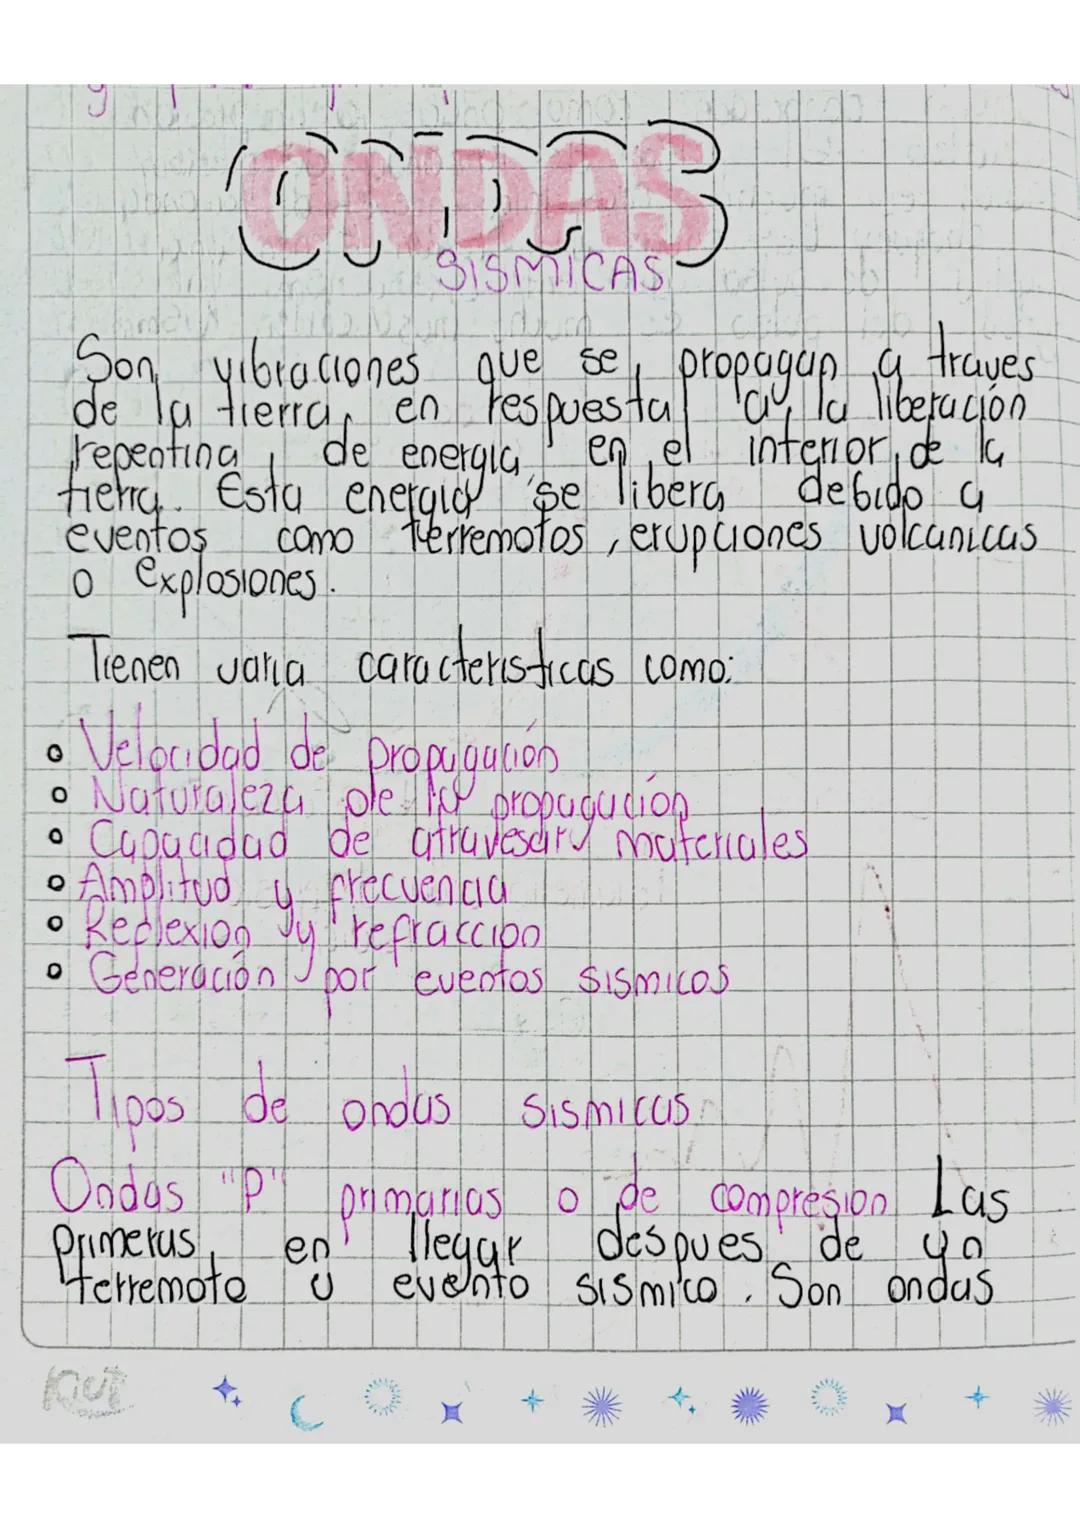 ONDAS
SISMICAS
Son vibraciones que se propagan a traves
de la tierra en respuesta a la liberación
repentina de energia en el interior de la
tierra. Esta energia se libera debido a
eventos como terremotos, erupciones volcanicas
o explosiones.
Tienen varia caracteristicas como:
Velocidad de propagación
Naturaleza de la propagación
Capacidad de atravesar materiales
Amplitud y frecuencia
Reflexion y refraccion
Generación por eventos sismicos
Tipos de ondas sismicas
Ondas "P" primarias o de compresion Las
primeras en llegar despues de un
terremoto u evento sismico. Son ondas